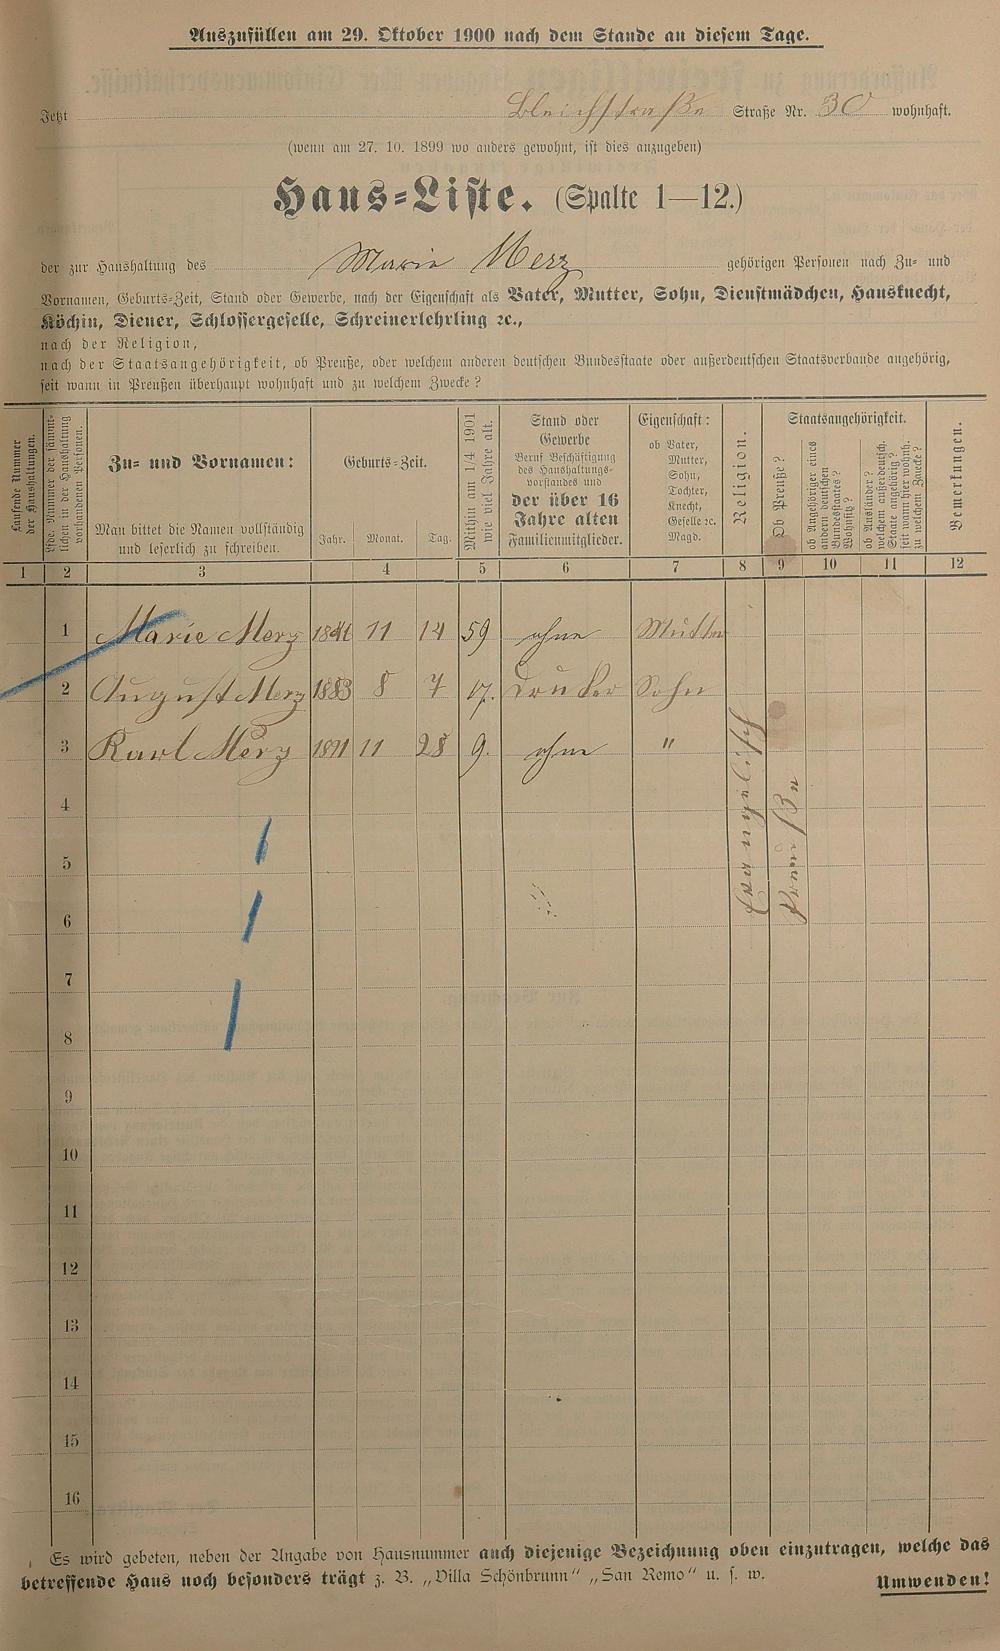 Auszufüllen am 29. Oktober 1900 nach dem Stande an diesem Tage.
Jetzt Bleichstraße Straße Nr. 30 wohnhaft.
(wenn am 27. 10. 1899 wo anders gewohnt, ist dies anzugeben)
Haus-Liste. (Spalte 1—12.)
der zur Haushaltung des Marie Merz gehörigen Personen nach Zu- und
Vornamen, Geburts-Zeit, Stand oder Gewerbe, nach der Eigenschaft als Vater, Mutter, Sohn, Dienstmädchen, Hausknecht,
Köchin, Diener, Schlossergeselle, Schreinerlehrling ꝛc.,
nach der Religion,
nach der Staatsangehörigkeit, ob Preuße, oder welchem anderen deutschen Bundesstaate oder außerdeutschen Staatsverbande angehörig,
seit wann in Preußen überhaupt wohnhaft und zu welchem Zwecke?
Laufende Nummer
der Haushaltungen.
Lfde. Nummer der sämmt-
lichen in der Haushaltung
vorhandenen Personen.
Zu- und Vornamen:
Man bittet die Namen vollständig
und leserlich zu schreiben.
Geburts-Zeit.
Jahr. Monat. Tag.
Mithin am 1/4 1901
wie viel Jahre alt.
Stand oder
Gewerbe
Beruf Beschäftigung
des Haushaltungs-
vorstandes und
der über 16
Jahre alten
Familienmitglieder.
Eigenschaft:
ob Vater,
Mutter,
Sohn,
Tochter,
Knecht,
Geselle ꝛc.
Magd.
Religion.
Staatsangehörigkeit.
Ob Preuße?
ob Angehöriger eines
andern deutschen
Bundesstaates?
Wohnsitz?
ob Ausländer?
welchem außerdeutsch.
Staate angehörig?
seit wann hier wohnh.
zu welchem Zwecke?
Bemerkungen.
1 2 3 4 5 6 7 8 9 10 11 12
1 Marie Merz 1841 11 14 59 ohne Mutter
2 August Merz 1883 8 7 17. Drucker Sohn
3 Karl Merz 1891 11 28 9. ohne "
Evangelisch
Preuße
4
5
6
7
8
9
10
11
12
13
14
15
16
Es wird gebeten, neben der Angabe von Hausnummer auch diejenige Bezeichnung oben einzutragen, welche das
betreffende Haus noch besonders trägt z. B. „Villa Schönbrunn" „San Remo" u. s. w.
Umwenden!